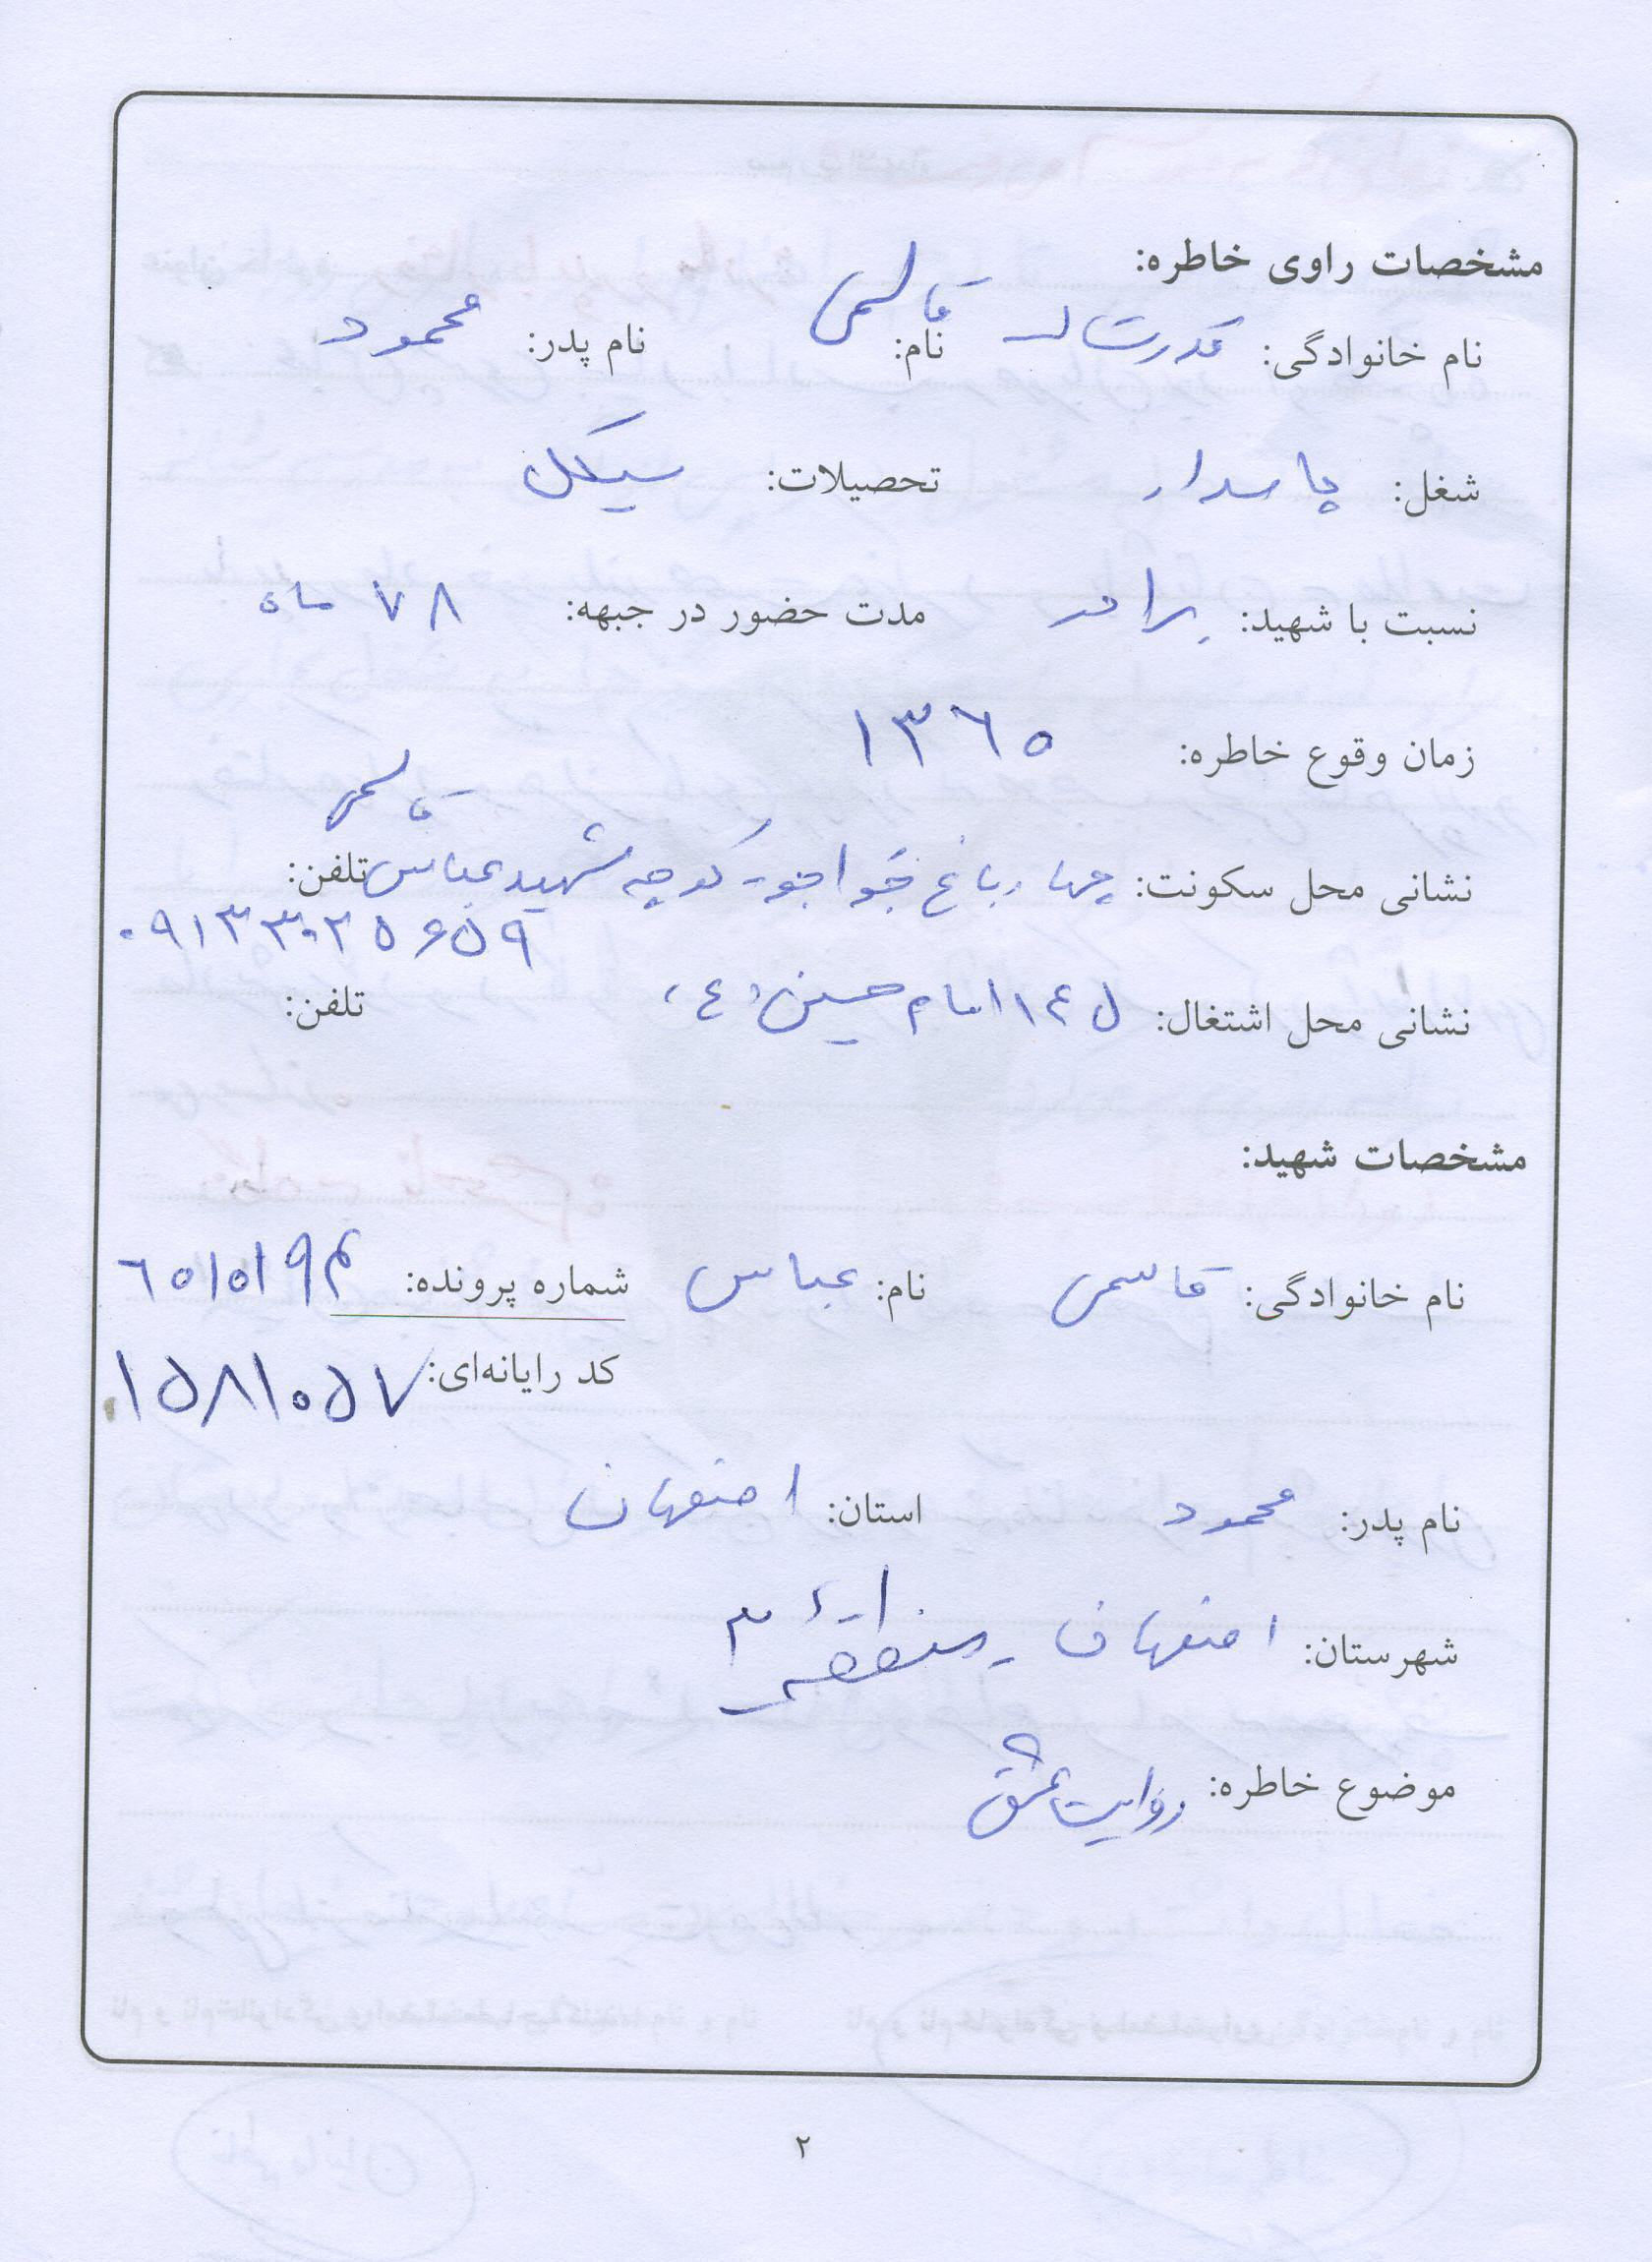 مشخصات راوی خاطره:
نام خانوادگی: قدرت‌اله قاسمی نام: نام پدر: محمود
شغل: پاسدار تحصیلات: سیکل
نسبت با شهید: برادر مدت حضور در جبهه: ۷۸ ماه
زمان وقوع خاطره: ۱۳۶۰
نشانی محل سکونت: چهارباغ خواجو - کوچه شهید عباس قاسمی تلفن:
۰۹۱۳۳۰۲۵۶۵۹
نشانی محل اشتغال: ل ۱۴ امام حسین (ع) تلفن:
مشخصات شهید:
نام خانوادگی: قاسمی نام: عباس شماره پرونده: ۶۰۱۰۱۹م
کد رایانه‌ای: ۱۵۸۱۰۵۷
نام پدر: محمود استان: اصفهان
شهرستان: اصفهان - منطقه ۳
موضوع خاطره: روایت عشق
۲